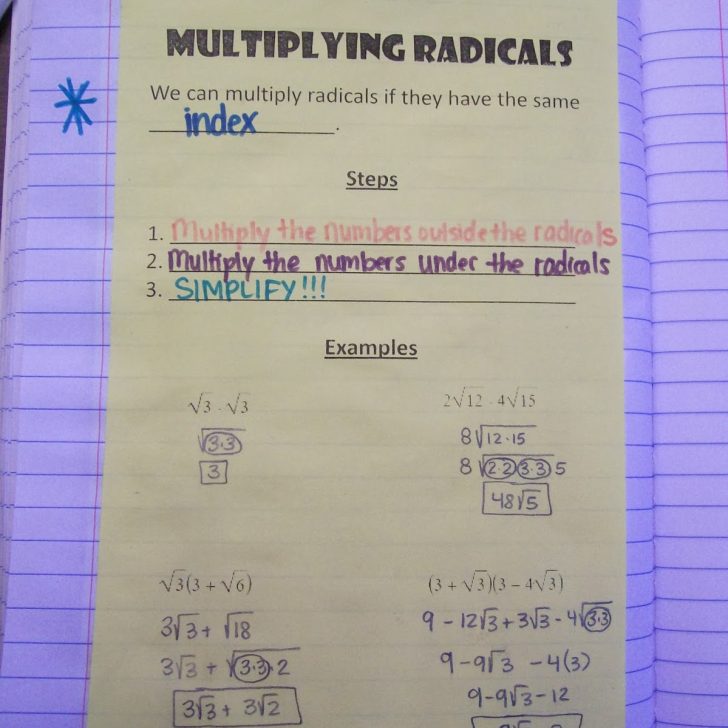 MULTIPLYING RADICALS
We can multiply radicals if they have the same
index.
Steps
1. Multiply the numbers outside the radicals
2. Multiply the numbers under the radicals
3. SIMPLIFY!!!
Examples
√3 · √3
√3·3
3
2√12 · 4√15
8√12·15
8√2·2 3·3 5
48√5
√3(3 + √6)
3√3 + √18
3√3 + √3·3·2
3√3 + 3√2
(3 + √3)(3 − 4√3)
9 - 12√3 + 3√3 - 4√3·3
9 - 9√3 - 4(3)
9-9√3-12